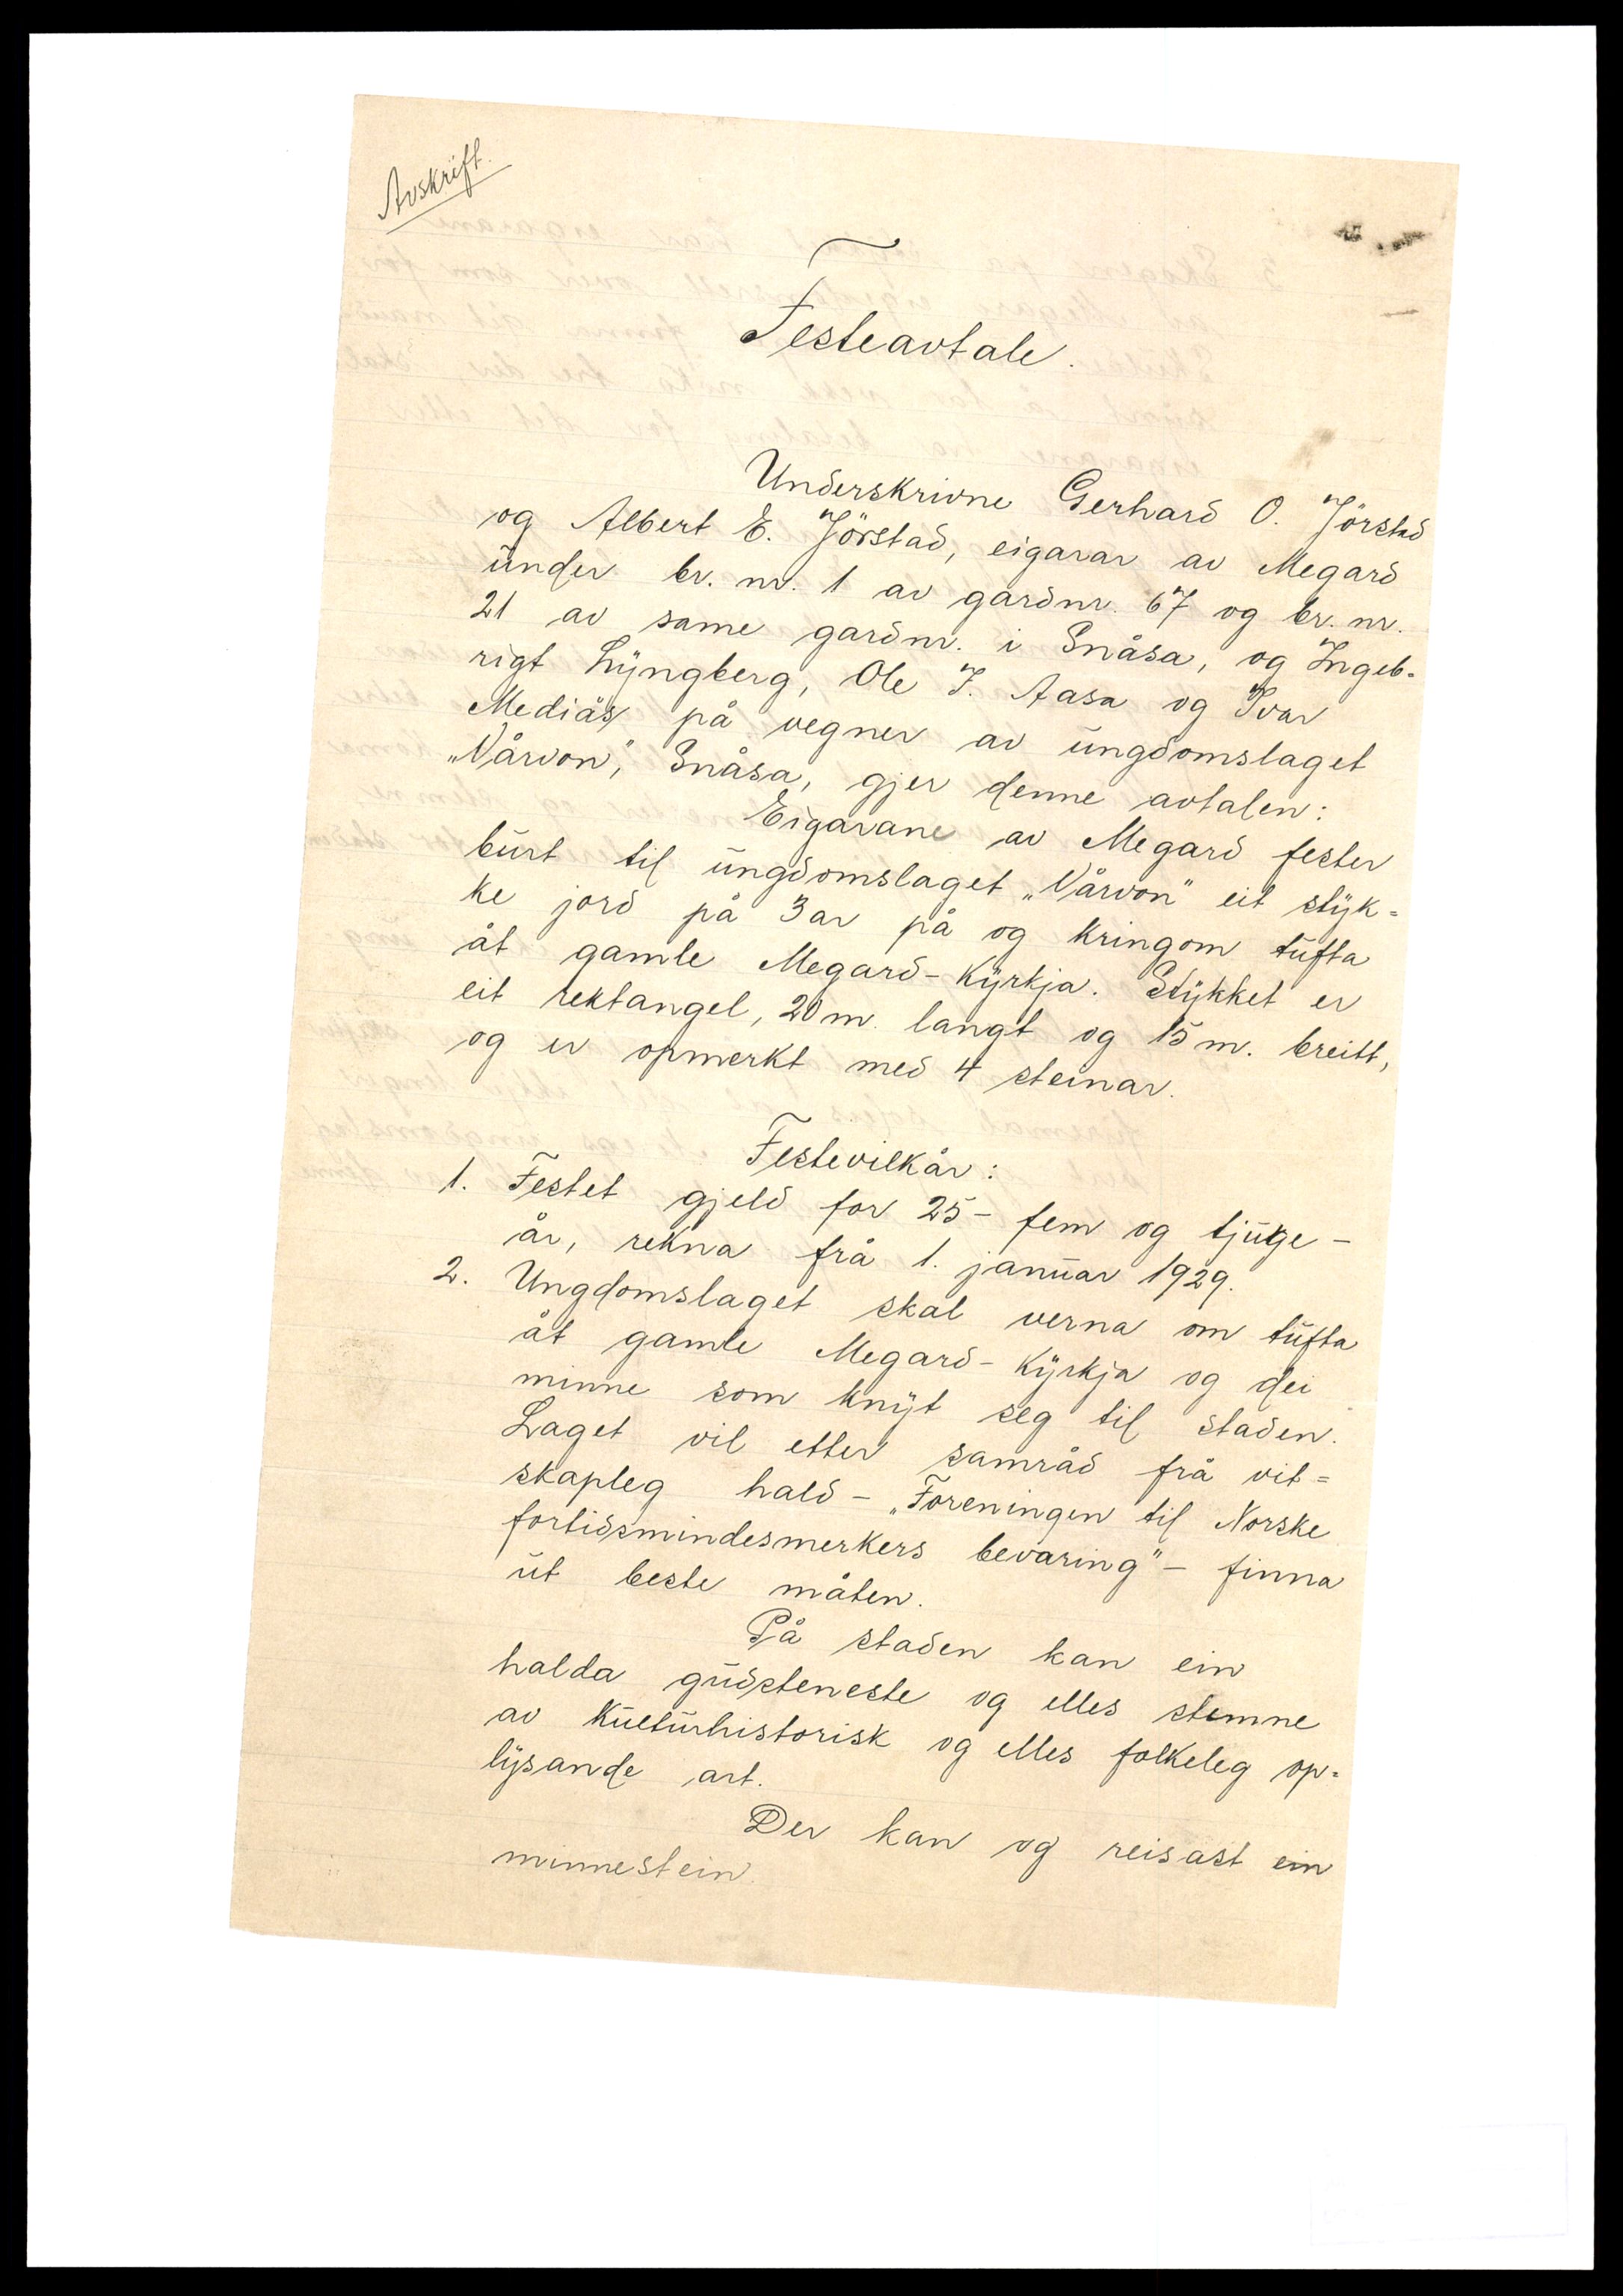 Avskrift.
Festeavtale.
Underskrivne Gerhard O. Jörstad
og Albert E. Jörstad, eigarar av Megard
under br. nr. 1 av gardnr. 67 og br. nr.
21 av same gardnr. i Snåsa, og Ingeb-
rigt Lyngberg, Ole J. Aasa og Ivar
Mediås på vegner av ungdomslaget
„Vårvon", Snåsa, gjer denne avtalen:
Eigarane av Megard fester
burt til ungdomslaget „Vårvon" eit styk=
ke jord på 3 ar på og kringom tufta
åt gamle Megard-Kyrkja. Stykket er
eit rektangel, 20 m. langt og 15 m. breitt,
og er opmerkt med 4 steinar.
Festevilkår:
1. Festet gjeld for 25 - fem og tjuge -
år, rekna frå 1. januar 1929.
2. Ungdomslaget skal verna om tufta
åt gamle Megard-Kyrkja og dei
minne som knyt seg til staden.
Laget vil etter samråd frå vit=
skapleg hald - „Foreningen til Norske
fortidsmindesmerkers bevaring" - finna
ut beste måten.
På staden kan ein
halda gudsteneste og elles stemne
av Kulturhistorisk og elles folkeleg op=
lysande art.
Der kan og reisast ein
minnestein.